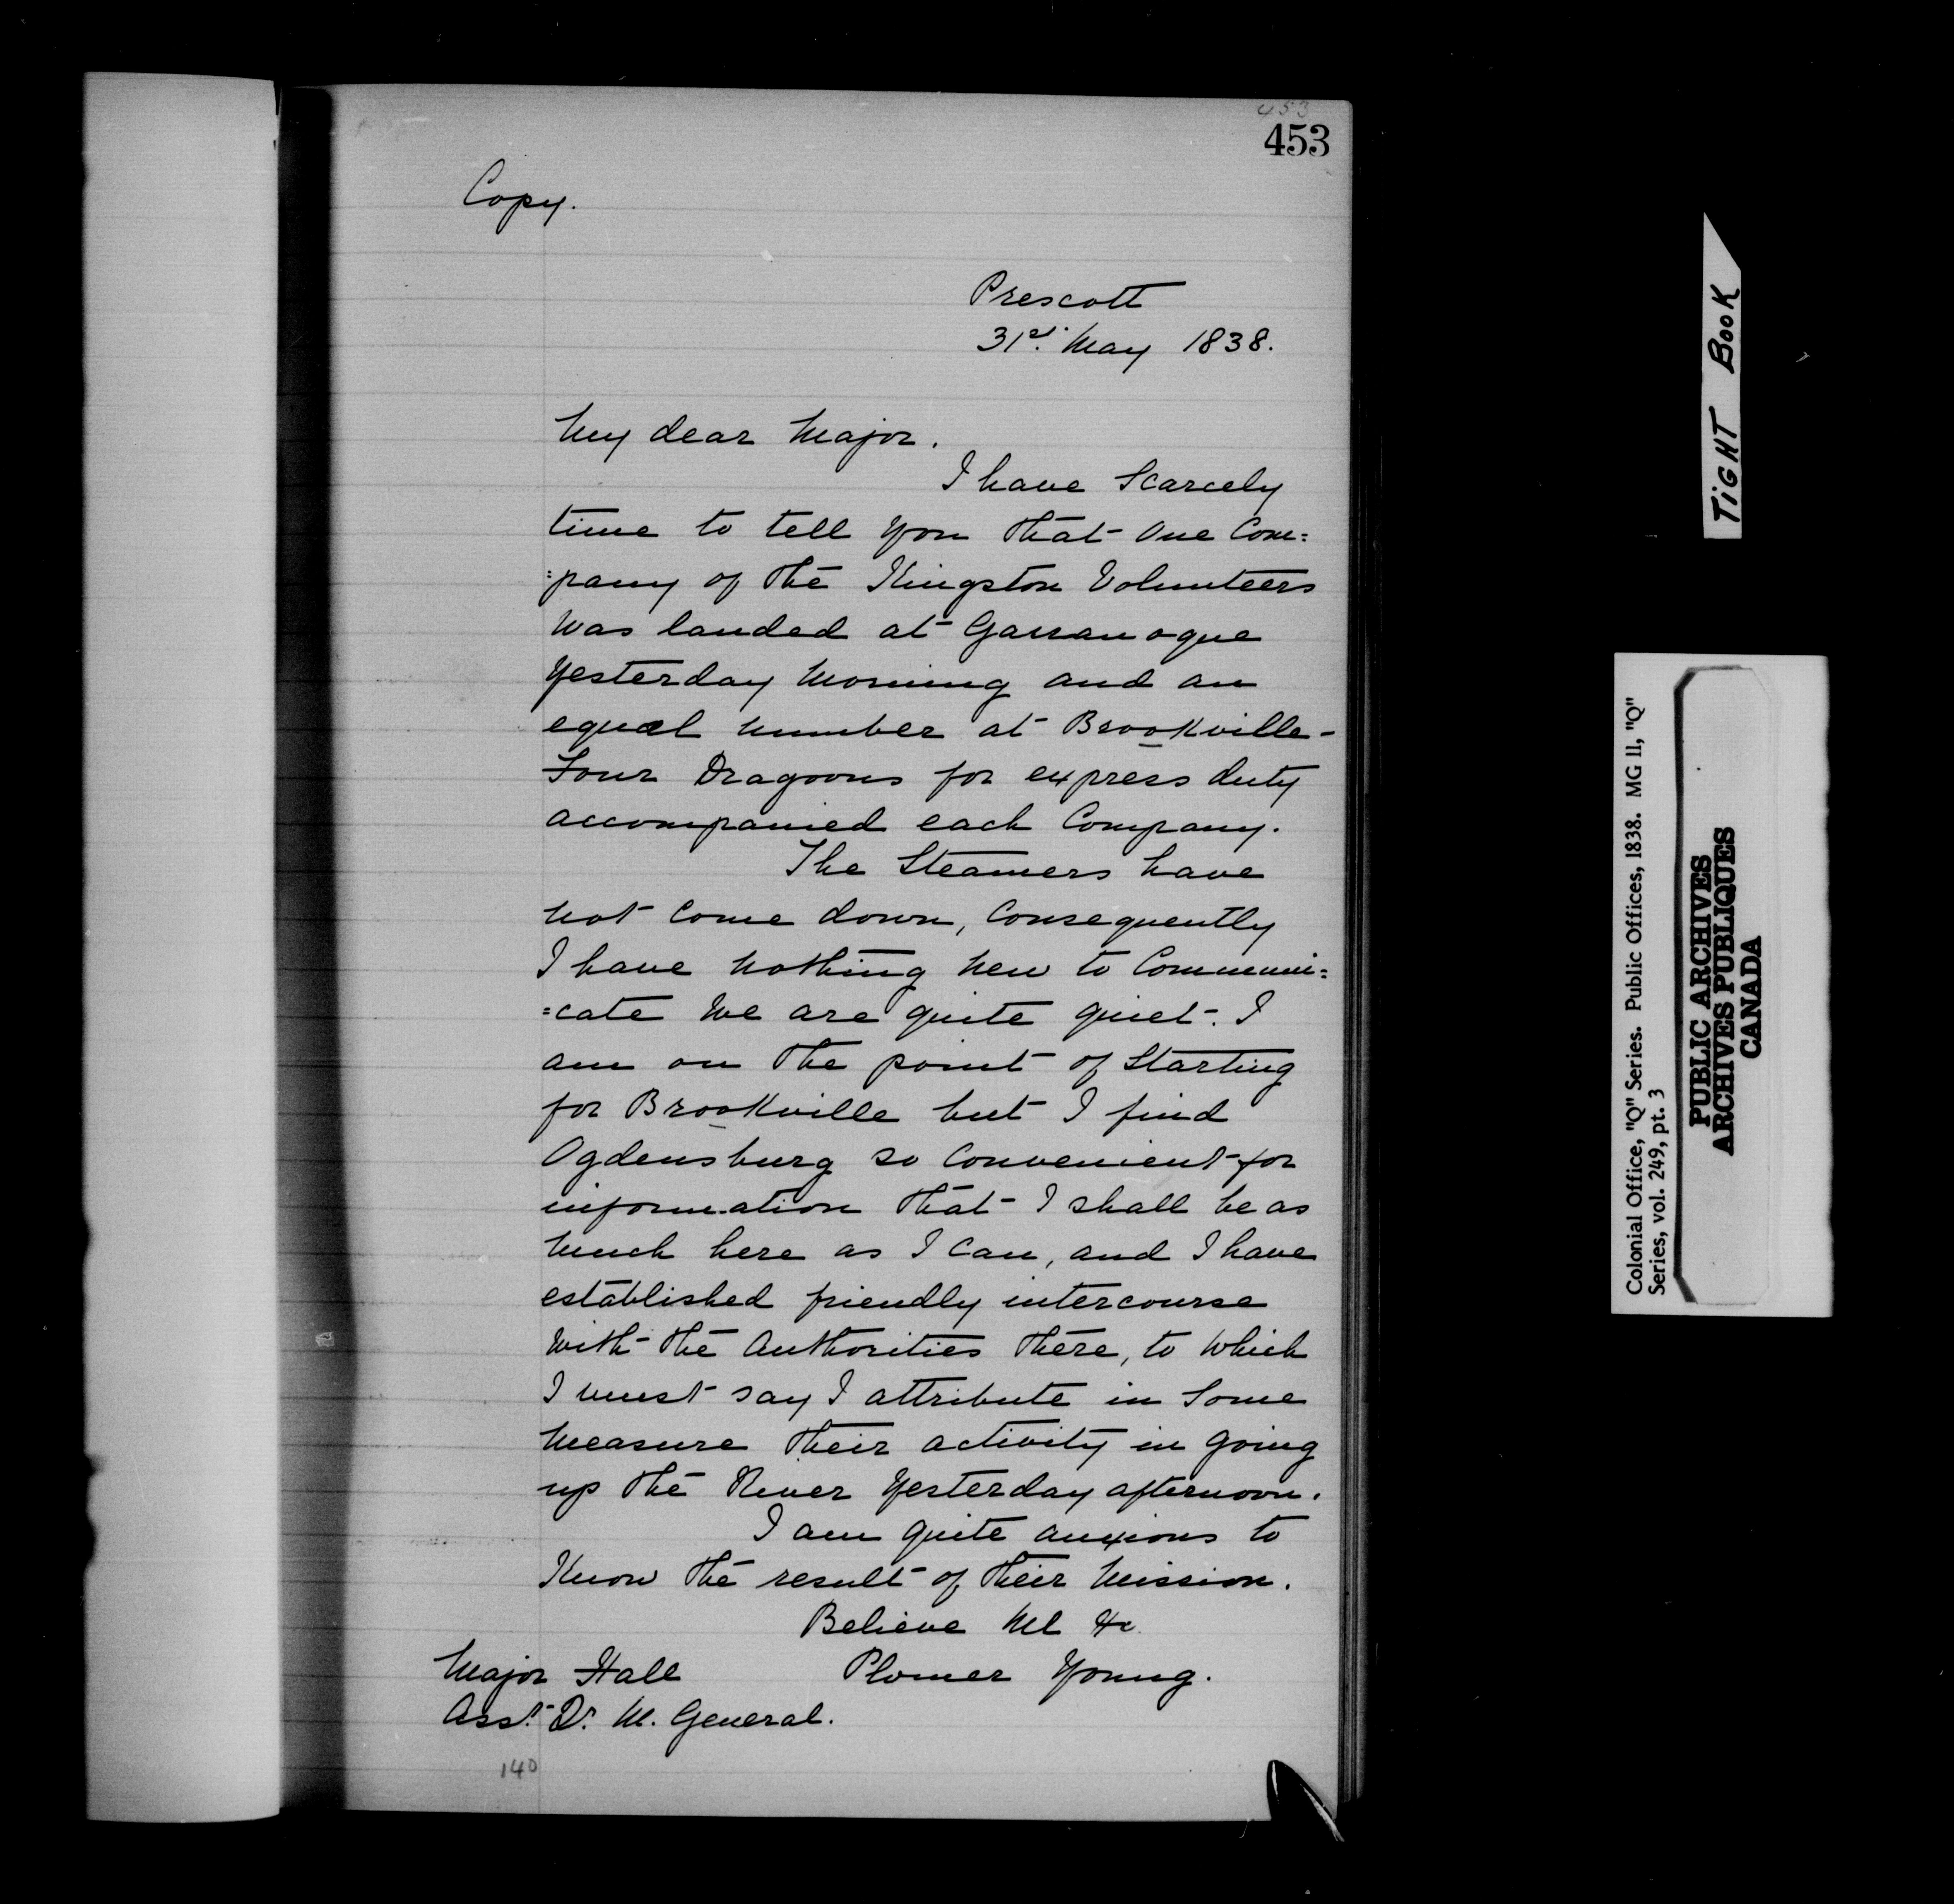 453
453
Copy.
Prescott
31st. May 1838.
My dear Major.
I have Scarcely
time to tell you that one Com=
=pany of the Kingston Volunteers
was landed at Gananoque
Yesterday Morning and an
equal number at Brookville-
Four Dragoons for express duty
accompanied each Company.
The Steamers have
not come down, Consequently
I have nothing new to Communi=
=cate We are quite quiet. I
am on the point of Starting
for Brookville but I find
Ogdensburg so convenient for
information that I shall be as
much here as I can, and I have
established friendly intercourse
with the Authorities there, to which
I must say I attribute in Some
measure their activity in going
up the River Yesterday afternoon.
I am quite anxious to
Know the result of their Mission.
Believe Me &c.
Major Hall Plomer Young.
Asst. Qr. M. General.
140
TIGHT BOOK
Colonial Office, "Q" Series. Public Offices, 1838. MG 11, "Q"
Series, vol. 249, pt. 3
PUBLIC ARCHIVES
ARCHIVES PUBLIQUES
CANADA